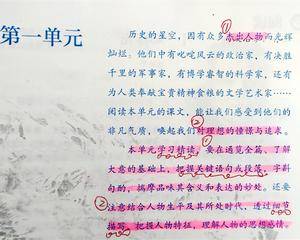 第一单元
①
历史的星空，因有众多杰出人物而光辉
灿烂。他们中有叱咤风云的政治家，有决胜
千里的军事家，有博学睿智的科学家，还有
为人类奉献宝贵精神食粮的文学艺术家……
阅读本单元的课文，能让我们感受到他们的
②
非凡气质，唤起我们对理想的憧憬与追求。
①
本单元学习精读。要在通览全篇、了解
大意的基础上，把握关键语句或段落，字斟
句酌，揣摩品味其含义和表达的妙处。还要
②注意结合人物生平及其所处时代，透过细节
描写，把握人物特征，理解人物的思想感情。